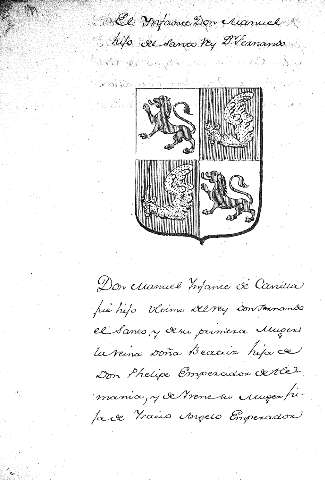 El Ynfante Don Manuel
hijo de Santo Rey Dn Fernando
Don Manuel Ynfante de Castilla
fue hijo Ultimo del Rey Don Fernando
el Santo, y de su primera Muger
la Reina Doña Beatriz hija de
Don Phelipe Emperador de Ale
mania, y de Irene su Muger hi
ja de Isacio Angelo Emperador